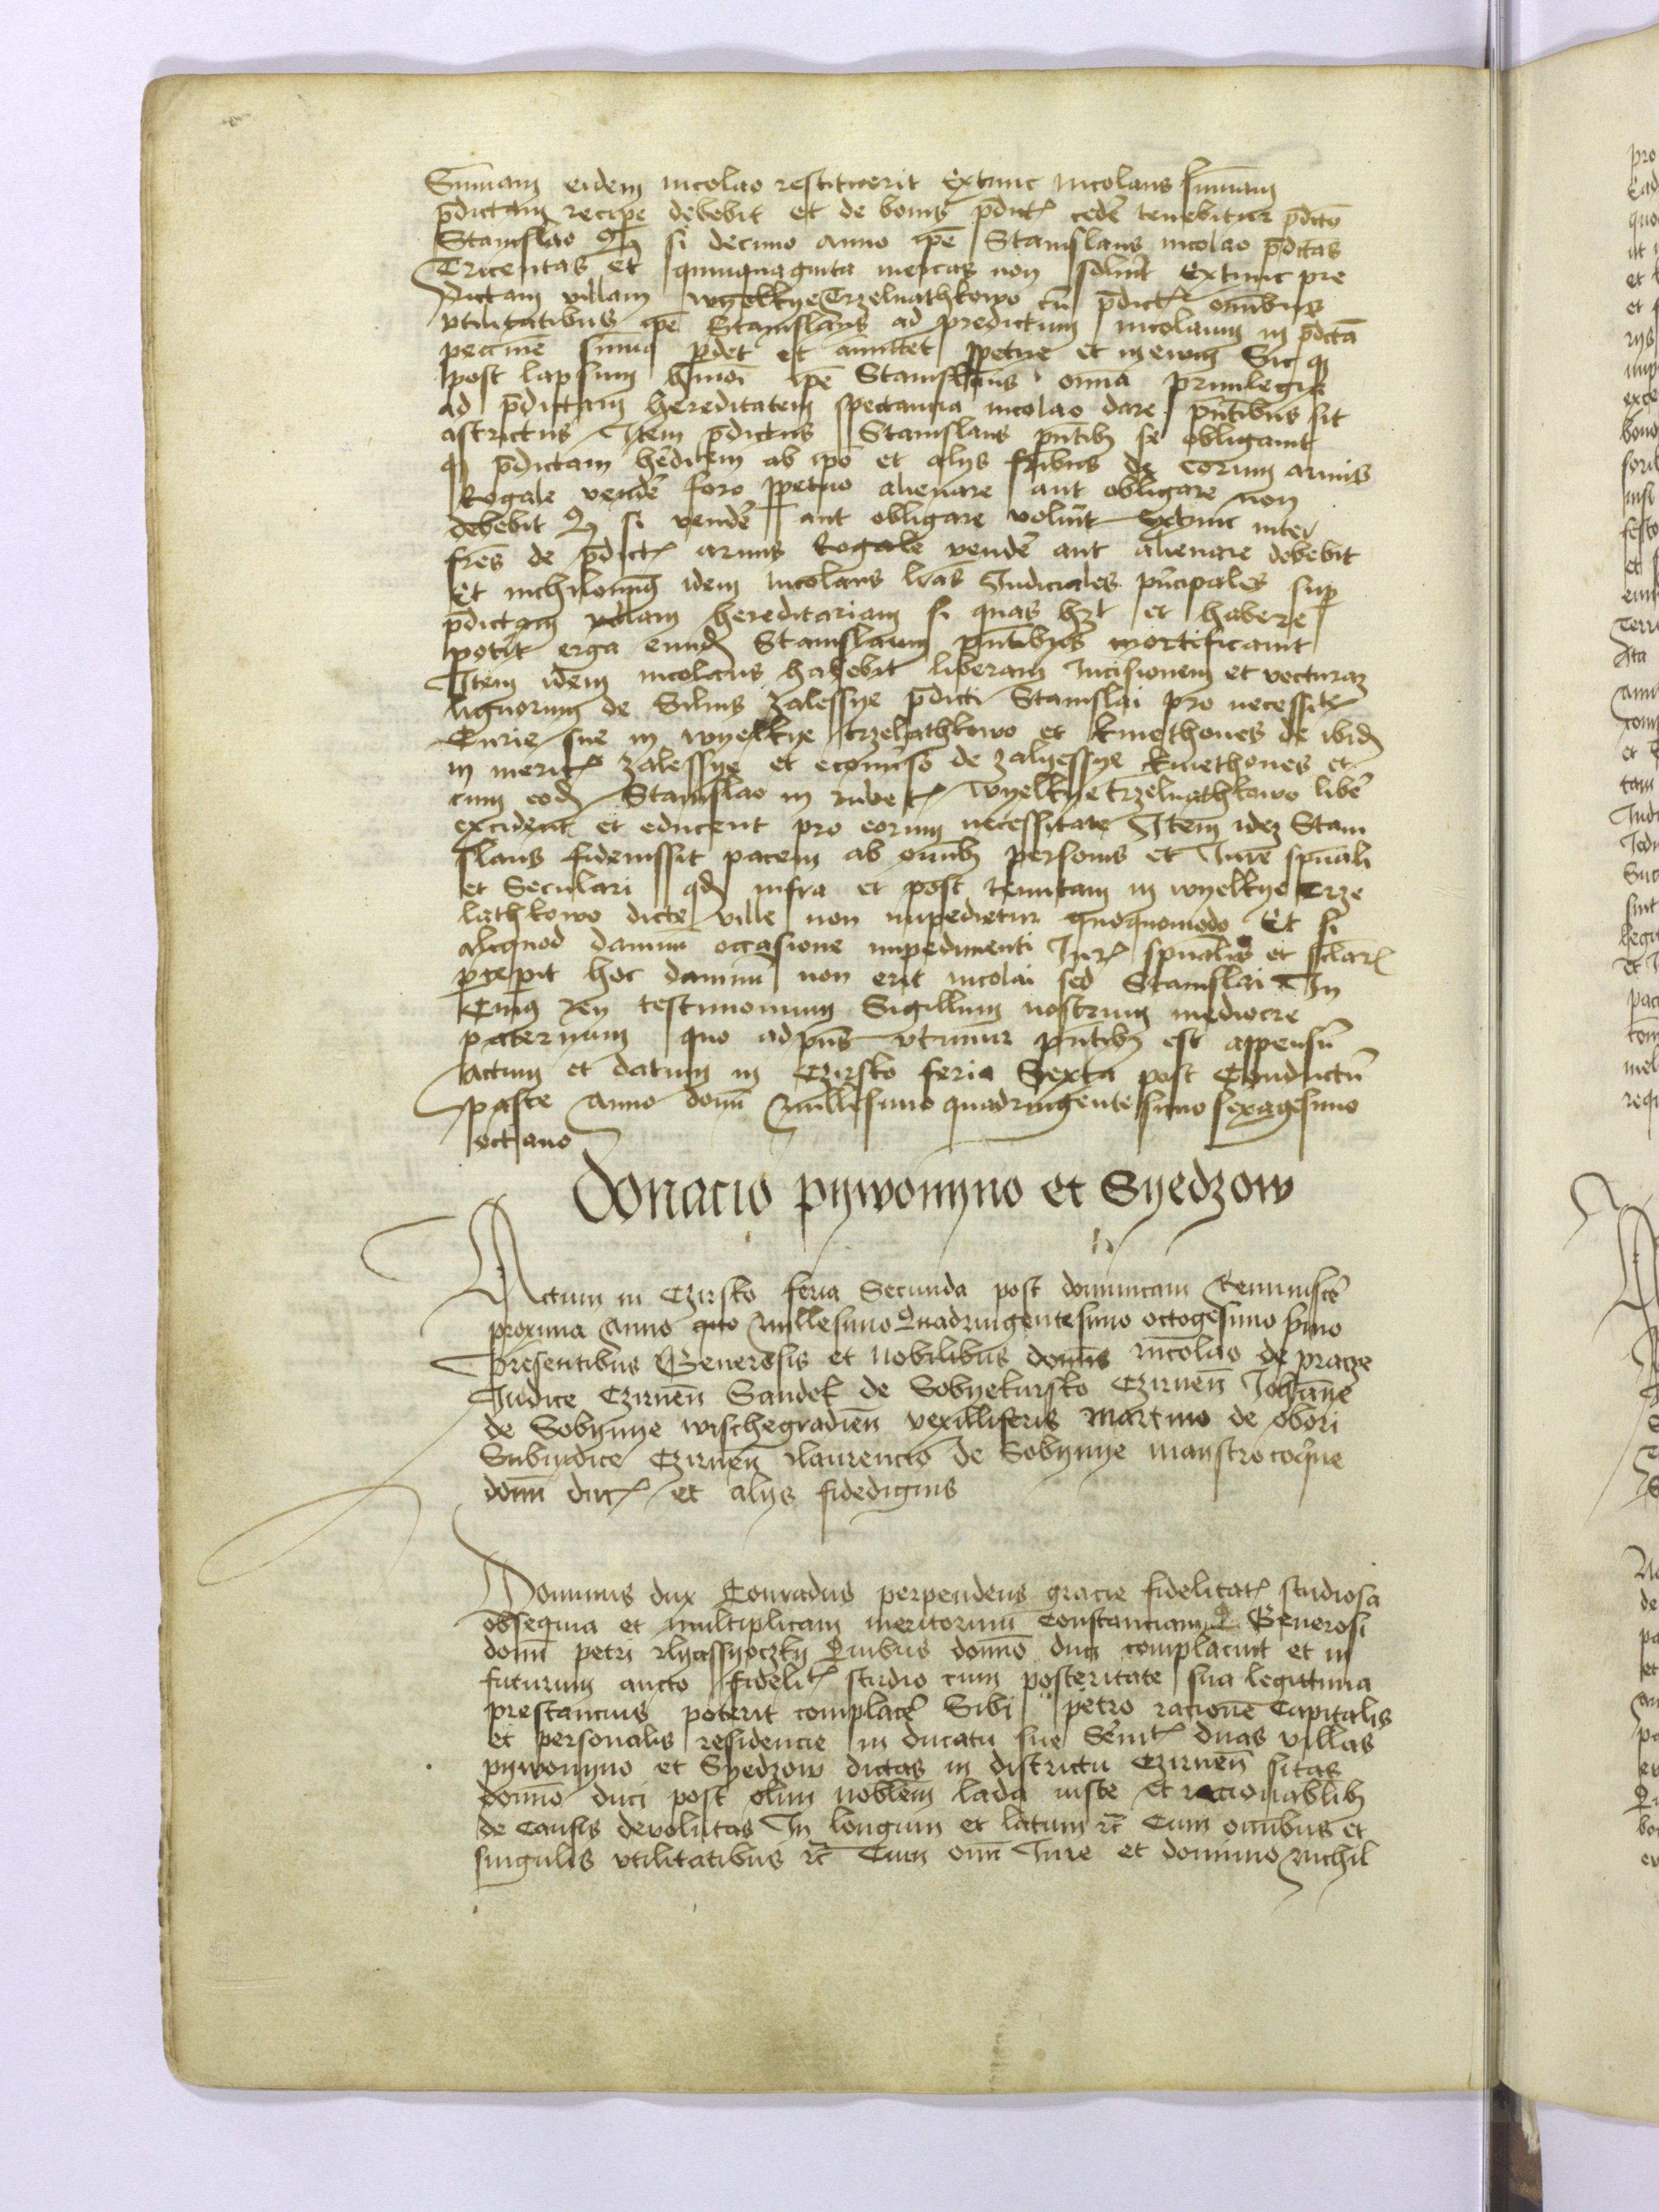 Summam eidem nicolao restituerit Extunc nicolaus sum̄am
p̄dictam recipe debebit et de bonis p̄dict cedē tenebitur p̄dcō
Stanislao Qz si decimo anno ipē Stanislaus nicolao p̄dictas
Tricentas et quinquaginta mercas non solūit Extunc pre
dictam villam wyelkye Trzelnathkowo cū p̄dict omībus
vtilitatibus ipē Stanislaus ad predictum nicolaum in p̄dcā
peccunie suma p̄det et amittet ppetue et in ewm Sic q
post lapsum hmōi ipē Stanislaus om̄ia priuilegia
ad p̄dictam hereditatem spectancia nicolao dare pn̄tibus sit
astrictus Item p̄dictus Stanislaus pn̄tibz se obligauit
q p̄dictam hēditem ab ipō et alys frībus de eorum armis
Rogale vendē foro ppetuo alienare aut obligare non
debebit Qz si vendē aut obligare volūit extunc inter
fres de p̄dict armis Rogale vendē aut alienare debebit
Et nichilominq idem nicolaus lras Judiciales pn̄cipales sup
p̄dictam villam hereditariam si quas hzt et habere
potit erga eund Stanislaum pn̄tibus mortificauit
Item idem nicolaus habebit liberam Incisionem et vecturaz
lignorum de Siluis zalessye p̄dicti Stanislai pro necessit
Curie sue in wyelkye trzelathkowo et kmethones de ibid
in merit zalessye et econuso de zalyessye kmethones et
cum eod Stanislao in rubet wyelkye trzelnathkowo libē
excident et educent pro eorum necessitate Item idez Stani
slaus fideiussit pacem ab omībz personis et Jure spūali
et Seculari qd infra et post tenutam in wyelkye Trze
lathkowo dicte ville non impedietur quoquomodo Et si
aliquod damnū occasione impedimenti Jur spūalis et sclar
p̄cepit hoc damnū non erit nicolai sed Stanislai In
Cuiq rey testimonium Sigillum nostrum mediocre
paternum quo ad pn̄s vtimur pn̄tibz est appensū
Actum et datum in Czirsko feria Sexta post Conductū
pasce Anno domī Millesimo quadringentesimo sexagesimo
octauo
Donacio pywonyno et Syedzow
Actum in Czirsko feria Secunda post dominicam Reminiscē
proxima Anno quo Millesimo Quadringentesimo octogesimo p̄mo
Presentibus Generosis et nobilibus domīs nicolao de pracze
Judice Czirnen̄ Sandek de Sobyekursko Czirnen̄ Johan̄e
de Sobynye wischegradien̄ vexilliferis Martino de obori
Subiudice Czirnen̄ Laurencio de Sobynye maystro coq̄ine
domī duc et alys fidedignis
Dominus dux Conradus perpendens gracie fidelitat studiosa
obsequia et multiplicam meritorum constanciam Generosi
domī petri Quibus domīo duci complacuit et in
futurum aucto fidelit studio cum posteritate sua legittima
prestancius poterit complacē Sibi petro racione Capitalis
et personalis residencie in ducatu sue Sēnit duas villas
pywonyno et Syedzow dictas in districtu Czirnen̄ sitas
domīo duci post olim noblēm lada iuste et racionabilibz
de Causis deuolutas In longum et latum rc̄ Cum omībus et
singulis vtilitatibus rc̄ Cum om̄i Jure et dominio nichil